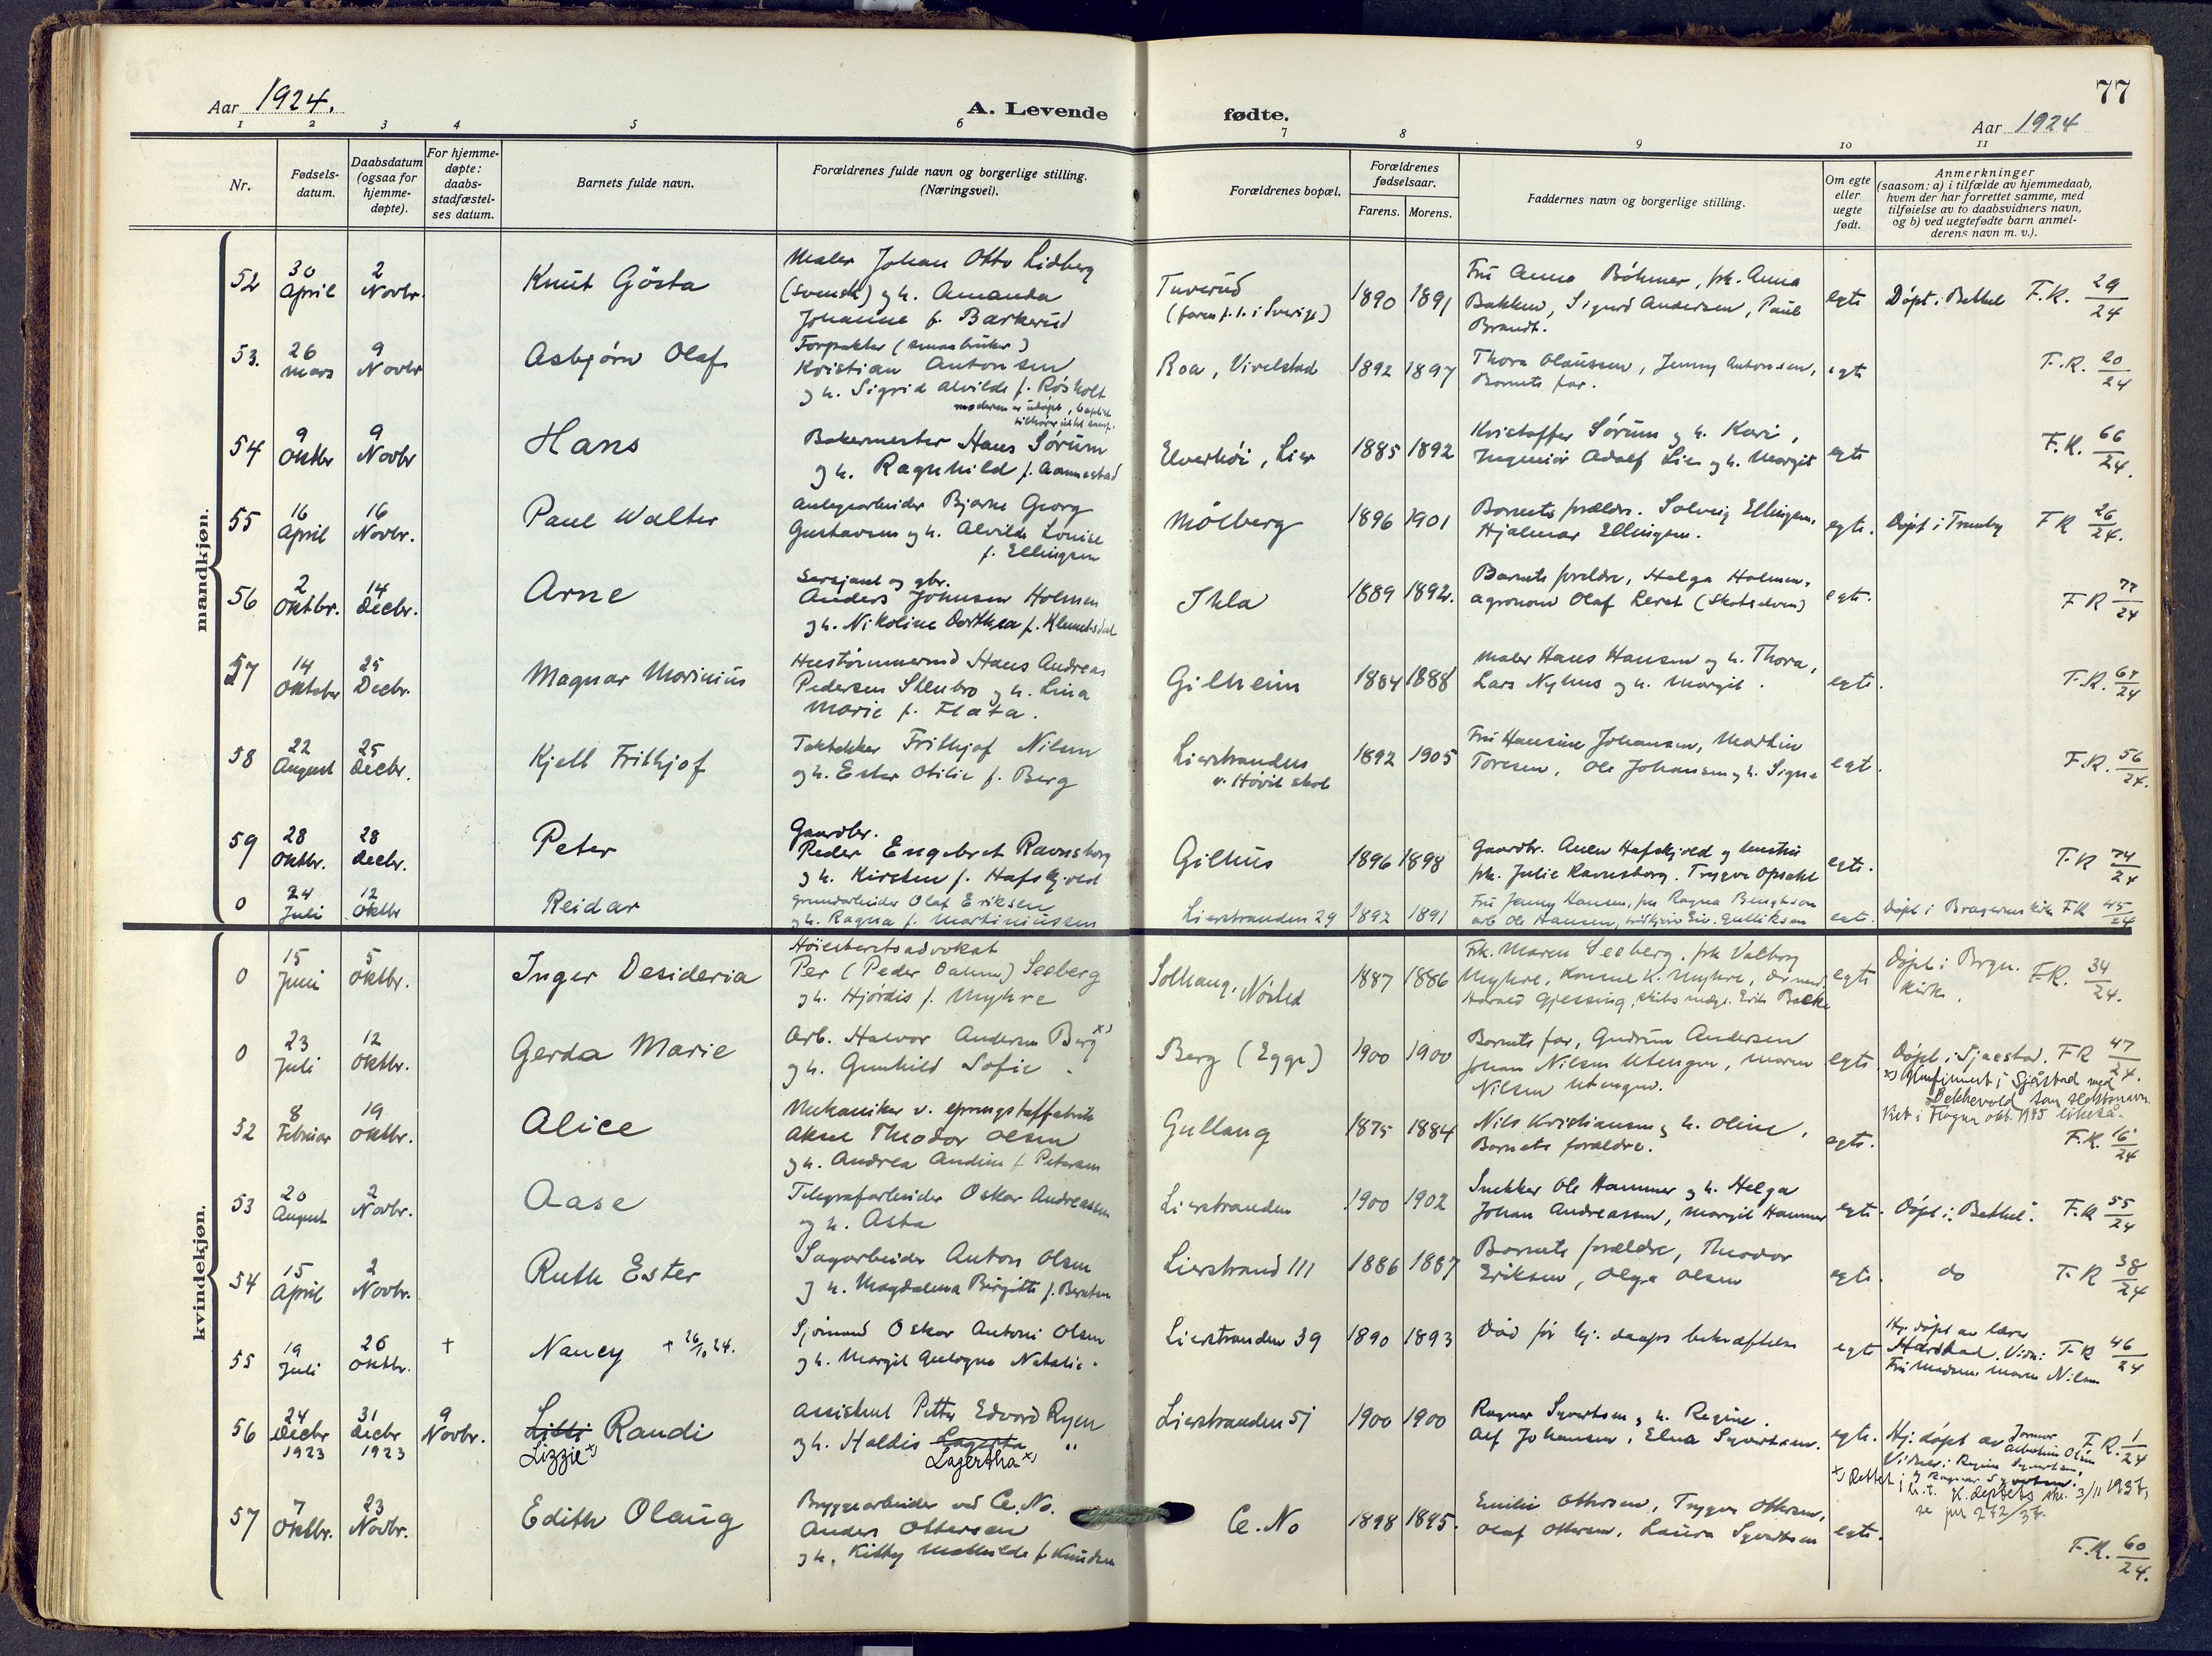 77
Aar 1924.
A. Levende fødte.
Aar 1924
1 2 3 4 5 6 7 8 9 10 11
Nr.
Fødsels-
datum.
Daabsdatum
(ogsaa for
hjemme-
døpte).
For hjemme-
døpte:
daabs-
stadfæstel-
ses datum.
Barnets fulde navn.
Forældrenes fulde navn og borgerlige stilling.
(Næringsvei).
Forældrenes bopæl.
Forældrenes
fødselsaar.
Farens. Morens.
Faddernes navn og borgerlige stilling.
Om egte
eller
uegte
født.
Anmerkninger
(saasom: a) i tilfælde av hjemmedaab,
hvem der har forrettet samme, med
tilføielse av to daabsvidners navn,
og b) ved uegtefødte barn anmel-
derens navn m. v.).
mandkjøn.
52
30 April
2 Novbr.
Knut Gösta
Maler Johan Otto Lidberg
(svensk) og h. Amanda
Johanne f. Barkerud
Tuverud
(faren f. h. i Sverige)
1890 1891
Fru Anna Böhmer, frk. Anna
Bakken, Sigurd Andersen, Paul
Brandt.
egte
Døpt i Bethel F.R. 29/24
53.
26 Mars
9 Novbr
Asbjørn Olaf
Forpakter (smaabruker)
Kristian Antonsen
og h. Sigrid Alvilde f. Røsholt
Roa, Vivelstad
1892 1897
Thora Olaussen, Jenny Antonsen,
Barnets far.
egte
F.R. 20/24
54
9 Oktbr
9 Novbr
Hans
Bakermester Hans Sørum
og h. Ragnhild f. Aamestad
Elverhøi, Lier
1885 1892
Kristoffer Sørum og h. Kari,
Ingeniør Adolf Lie og h. Margit
egte
F.R. 66/24.
55
16 April
16 Novbr.
Paul Walter
Anlegsarbeider Bjarne Georg
Gustavsen og h. Alvilde Louise
f. Ellingsen
Mølberg
1896 1901
Barnets forældre. Solveig Ellingsen,
Hjalmar Ellingsen.
egte.
Døpt i Tranby FR 26/24.
56
2 Oktbr.
14 Decbr.
Arne
Sersjant og gbr.
Anders Johnsen Holmen
og h. Nikoline Dorthea f. Klemetsdal
Ihla
1889 1892.
Barnets foreldre, Helga Holmen,
agronom Olaf Leret (Skotselven)
egte.
FR 77/24
57
14 Oktober
25 Decbr.
Magnar Marinius
Hustømmermand Hans Andreas
Pedersen Stenbro og h. Lina
Marie f. Flata.
Gilheim
1884 1888
Maler Hans Hansen og h. Thora,
Lars Nyhus og h. Margit.
egte.
F.R. 67/24
58
22 August
25 Decbr.
Kjell Frithjof
Taktekker Frithjof Nilsen
og h. Ester Otilie f. Berg
Lierstranden
v. Høvik skole
1892 1905
Fru Hansine Johansen, Martin
Toresen, Ole Johansen og h. Signe
egte.
F.R. 56/24.
59
28 Oktbr.
28 Decbr.
Peter
Gaardbr.
Peder Engebret Ravnsborg
og h. Kirsten f. Hafskjold
Gilhus
1896 1898
Gaardbr. Auen Hafskjold og hustru
frk. Julie Ravnsborg. Trygve Opsahl
egte.
F.R 74/24
0
24 Juli
12 Oktbr
Reidar
Grundarbeider Olaf Eriksen
og h. Ragna f. Martiniussen
Lierstranden 29
1892 1891
Fru Jenny Hansen, fru Ragna Bengtson
arb Ole Hansen, Gulliksen
egte.
Døpt i Bragernes kirke FR 45/24
kvindekjøn.
0
15 Juni
5 Oktbr.
Inger Desideria
Høiesteretsadvokat
Per (Peder Daham) Seeberg
og h. Hjørdis f. Myhre
Solhaug, Nøsted
1887 1886
Frk. Maren Seeberg. frk Valborg
Myhre,
Harald Gjessing,
egte
Døpt i Brgn.
kirke.
F.R. 34/24.
0
23 Juli
12 Oktbr.
Gerda Marie
Arb. Halvor Andersen Berg x)
og h. Gunhild Sofie.
Berg (Egge)
1900 1900
Barnets far, Gudrun Andersen
Johan Nilsen Utengen, Maren
Nilsen Utengen.
egte
Døpt i Sjaastad. FR 47/24.
x) Konfirmert i Sjåstad med
Bekkevold som slektsnavn.
Viet i Frogner okt. 1945 likeså.
52
8 Februar
19 Oktbr.
Alice
Mekaniker v. sprengstoffabrik
Aksel Theodor Olsen
og h. Andrea Andine f. Petersen
Gullaug
1875 1884
Nils Kristiansen og h. Oline,
Barnets forældre.
egte.
F.R. 16/24
53
20 August
2 Novbr.
Aase
Telegrafarbeider Oskar Andreassen
og h. Asta
Lierstranden
1900 1902
Snekker Ole Hammer og h. Helga
Johan Andreassen, Margit Hammer
egte.
Døpt i "Bethel". F.R 55/24
54
15 April
2 Novbr.
Ruth Ester
Sagarbeider Anton Olsen
og h. Magdalena Birgitte f. Berntsen
Lierstrand 111
1886 1887
Barnets forældre, Theodor
Eriksen, Olga Olsen
egte.
do
F.R 38/24
55
19 Juli
26 Oktbr.
+
Nancy + 26/10 24.
Sjømand Oskar Antoni Olsen
og h. Margit Natalie.
Lierstranden 39
1890 1893
Død før hj. daaps bekræftelse
egte
Hj. døpt av lærer
Harstad. Vidn:
Fru Madsen Maren Nilsen
F.R 46/24
56
24 Decbr 1923
31 Decbr 1923
9 Novbr.
Lilli Randi
Lizzie x)
Assistent Petter Edvard Ryen
og h. Haldis Lagerta "
Lagertha x)
Lierstranden 51
1900 1900
Ragnar Syvertsen og h. Regine.
Alf Johansen, Elna Syvertsen.
egte.
Hj. døpt av Jormor
Olsen
Vidner: Regine Syvertsen,
og Ragnar Syvertsen.
F.R. 1/24
x) Rettet i h.t. K. deptets skr. 3/11 1937,
se jnr 272/37.
57
7 Oktbr.
23 Novbr.
Edith Olaug
Bryggearbeider ved Ce. No.
Anders Ottersen
og h. Kitty Mathilde f. Knudsen
Ce. No
1898 1895.
Emilie Ottersen, Trygve Ottersen,
Olaf Ottersen, Laura Syvertsen
egte.
F.R. 60/24.